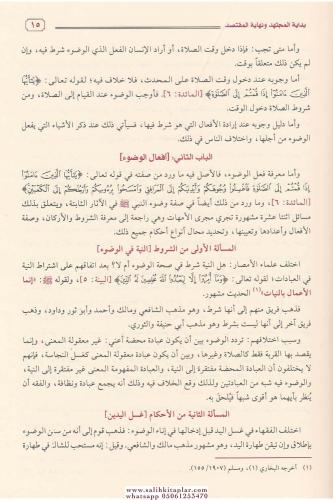 بداية المجتهد ونهاية المقتصد
١٥
وأما متى تجب: فإذا دخل وقت الصلاة، أو أراد الإنسان الفعل الذي الوضوء شرط فيه، وإن
لم يكن ذلك متعلقاً بوقت.
أما وجوبه عند دخول وقت الصلاة على المحدث، فلا خلاف فيه؛ لقوله تعالى: ﴿يَتَأَيُّهَا
الَّذِينَ ءَامَنُوا إِذَا قُمْتُمْ إِلَى الصَّلَوٰةِ﴾ [المائدة: ٦]، فأوجب الوضوء عند القيام إلى الصلاة، ومن
شروط الصلاة دخول الوقت.
وأما دليل وجوبه عند إرادة الأفعال التي هو شرط فيها، فسيأتي ذلك عند ذكر الأشياء التي يفعل
الوضوء من أجلها، واختلاف الناس في ذلك.
الباب الثاني: [أفعال الوضوء]
وأما معرفة فعل الوضوء، فالأصل فيه ما ورد من صفته في قوله تعالى: ﴿يَتَأَيُّهَا
الَّذِينَ ءَامَنُوا إِذَا قُمْتُمْ إِلَى الصَّلَوٰةِ فَاغْسِلُوا وُجُوهَكُمْ وَأَيْدِيَكُمْ إِلَى الْمَرَافِقِ وَامْسَحُوا بِرُءُوسِكُمْ وَأَرْجُلَكُمْ إِلَى الْكَعْبَيْنِ﴾
[المائدة: ٦]، وما ورد من ذلك أيضاً في صفة وضوء النبي ﷺ في الآثار الثابتة، ويتعلق بذلك
مسائل اثنتا عشرة مشهورة تجري مجرى الأمهات وهي راجعة إلى معرفة الشروط والأركان، وصفة
الأفعال وأعدادها وتعيينها، وتحديد محال أنواع أحكام جميع ذلك.
المسألة الأولى من الشروط [النية في الوضوء]
اختلف علماء الأمصار: هل النية شرط في صحة الوضوء أم لا؟ بعد اتفاقهم على اشتراط النية
في العبادات؛ لقوله تعالى: ﴿وَمَا أُمِرُوا إِلَّا لِيَعْبُدُوا اللَّهَ مُخْلِصِينَ لَهُ الدِّينَ﴾ [البينة: ٥]، ولقوله ﷺ: «إنما
الأعمال بالنيات»(١) الحديث مشهور.
فذهب فريق منهم إلى أنها شرط، وهو مذهب الشافعي ومالك وأحمد وأبي ثور وداود، وذهب
فريق آخر إلى أنها ليست بشرط وهو مذهب أبي حنيفة والثوري.
وسبب اختلافهم: تردد الوضوء بين أن يكون عبادة محضة أعني: غير معقولة المعنى، وإنما
يقصد بها القربة فقط كالصلاة وغيرها، وبين أن يكون عبادة معقولة المعنى كغسل النجاسة، فإنهم
لا يختلفون أن العبادة المحضة مفتقرة إلى النية، والعبادة المفهومة المعنى غير مفتقرة إلى النية،
والوضوء فيه شبه من العبادتين ولذلك وقع الخلاف فيه وذلك أنه يجمع عبادة ونظافة، والفقه أن
يُنظر بأيهما هو أقوى شبهاً فيُلحق به.
المسألة الثانية من الأحكام [غسل اليدين]
اختلف الفقهاء في غسل اليد قبل إدخالها في إناء الوضوء: فذهب قوم إلى أنه من سنن الوضوء
بإطلاق وإن تيقن طهارة اليد، وهو مشهور مذهب مالك والشافعي، وقيل: إنه مستحب للشاك في طهارة
(١) أخرجه البخاري (١)، ومسلم (١٩٠٧/١٥٥)
www.salihkitaplar.com
whatsapp 05061253470